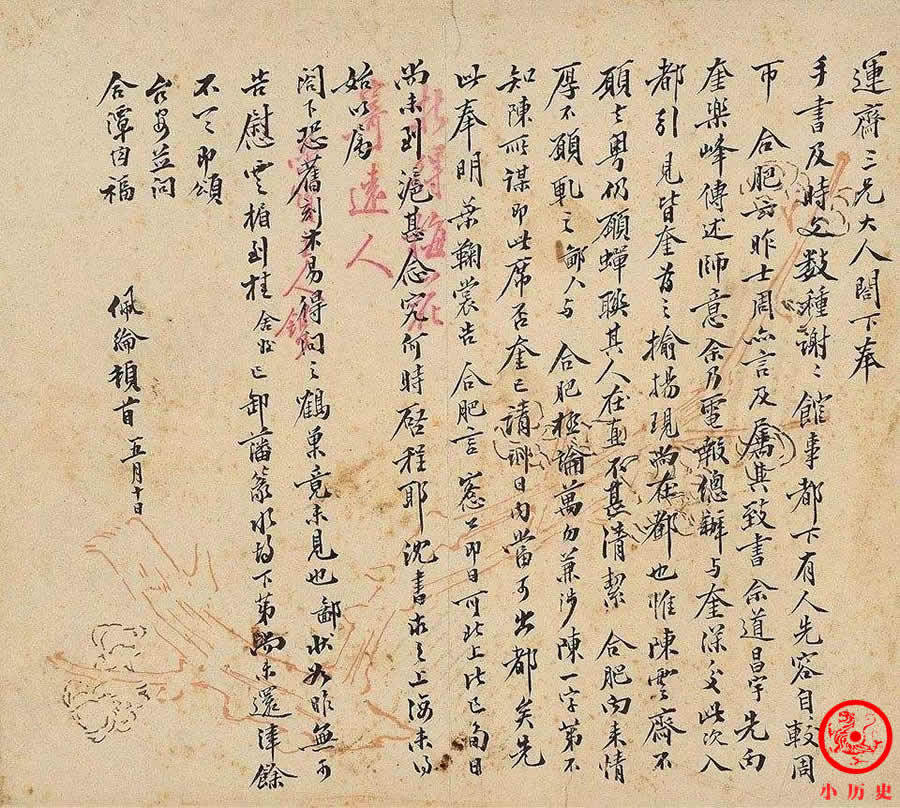 運齋三兄大人閣下奉
手書及時文數種謝謝館事都下有人先容自較周
帀合肥云昨士周亦言及屬其致書余道昌宇先向
奎樂峰傳述師意余乃電報總辦與奎深交此次入
都引見皆奎為之揄揚現尚在都也惟陳雲齋不
願之粵仍願蟬聯其人在直不甚清潔合肥向來情
厚不願軋之鄙人與合肥極論萬勿兼涉陳一字第不
知陳所謀即此席否奎已請訓日內當可出都矣先
此奉明葉鞠裳告合肥言窻公即日可北上此已旬日
尚未到滬甚念究何時啟程耶沈書求之上海未得
始以屬
閣下恐舊刻不易得詢之鶴巢竟未見也鄙狀如昨無可
告慰雲楣到桂舍姪已卸藩篆水故下第尚未還津餘
不一一即頌
台安並問
合潭自福
佩綸頓首五月十日
折得梅花
寄遠人
小历史